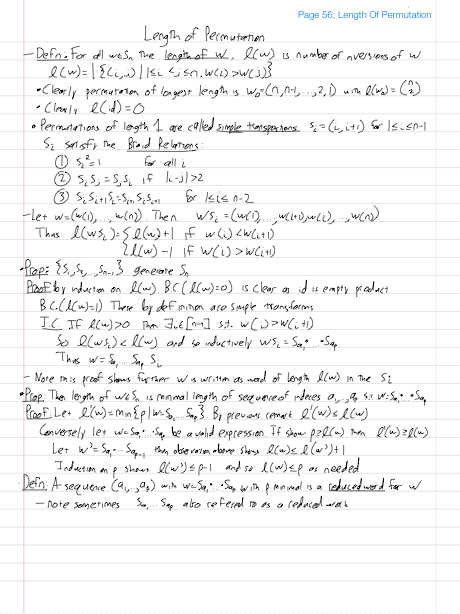 Page 56: Length Of Permutation
Length of Permutation
- Defn: For all w∈Sₙ the length of w, ℓ(w) is number of inversions of w
ℓ(w)=|{(i,j) | 1≤i<j≤n, w(i)>w(j)}|
• Clearly permutation of longest length is w₀=(n,n-1,...,2,1) with ℓ(w₀)=(n 2)
• Clearly ℓ(id)=0
• Permutations of length 1 are called simple transpositions sᵢ=(i,i+1) for 1≤i≤n-1
Sᵢ satisfy the Braid Relations:
① Sᵢ²=1 for all i
② SᵢSⱼ=SⱼSᵢ if |i-j|>2
③ SᵢSᵢ₊₁Sᵢ=Sᵢ₊₁SᵢSᵢ₊₁ for 1≤i≤n-2
- Let w=(w(1),...,w(n)). Then wSᵢ=(w(1),...,w(i+1),w(i),...,w(n))
Thus ℓ(wSᵢ)={ℓ(w)+1 if w(i)<w(i+1)
{ℓ(w)-1 if w(i)>w(i+1)
• Prop: {S₁,S₂,...,Sₙ₋₁} generate Sₙ
Proof: by induction on ℓ(w). B.C. (ℓ(w)=0) is clear as id is empty product
B.C. (ℓ(w)=1) These by definition are simple
I.C. If ℓ(w)>0 then ∃i∈[n-1] s.t. w(i)>w(i+1)
So ℓ(wSᵢ)<ℓ(w) and so inductively wSᵢ=Sₐ₁...Sₐₚ
Thus w=Sₐ₁...Sₐₚ Sᵢ
- Note this proof shows further w is written as word of length ℓ(w) in the Sᵢ
• Prop: Then length of w∈Sₙ is minimal length of sequence of indices a₁,...,aₚ s.t. w=Sₐ₁...Sₐₚ
Proof: Let ℓ'(w)=min{p|w=Sₐ₁...Sₐₚ}. By previous remark ℓ'(w)≤ℓ(w)
Conversely let w=Sₐ₁...Sₐₚ be a valid expression. If show p≥ℓ(w) then ℓ'(w)≥ℓ(w)
Let w'=Sₐ₁...Sₐₚ₋₁ then observation above shows ℓ(w)≤ℓ(w')+1
Induction on p shows ℓ(w')≤p-1 and so ℓ(w)≤p as needed
- Defn: A sequence (a₁,...,aₚ) with w=Sₐ₁...Sₐₚ with p minimal is a reduced word for w
- note sometimes Sₐ₁...Sₐₚ also refered to as a reduced word